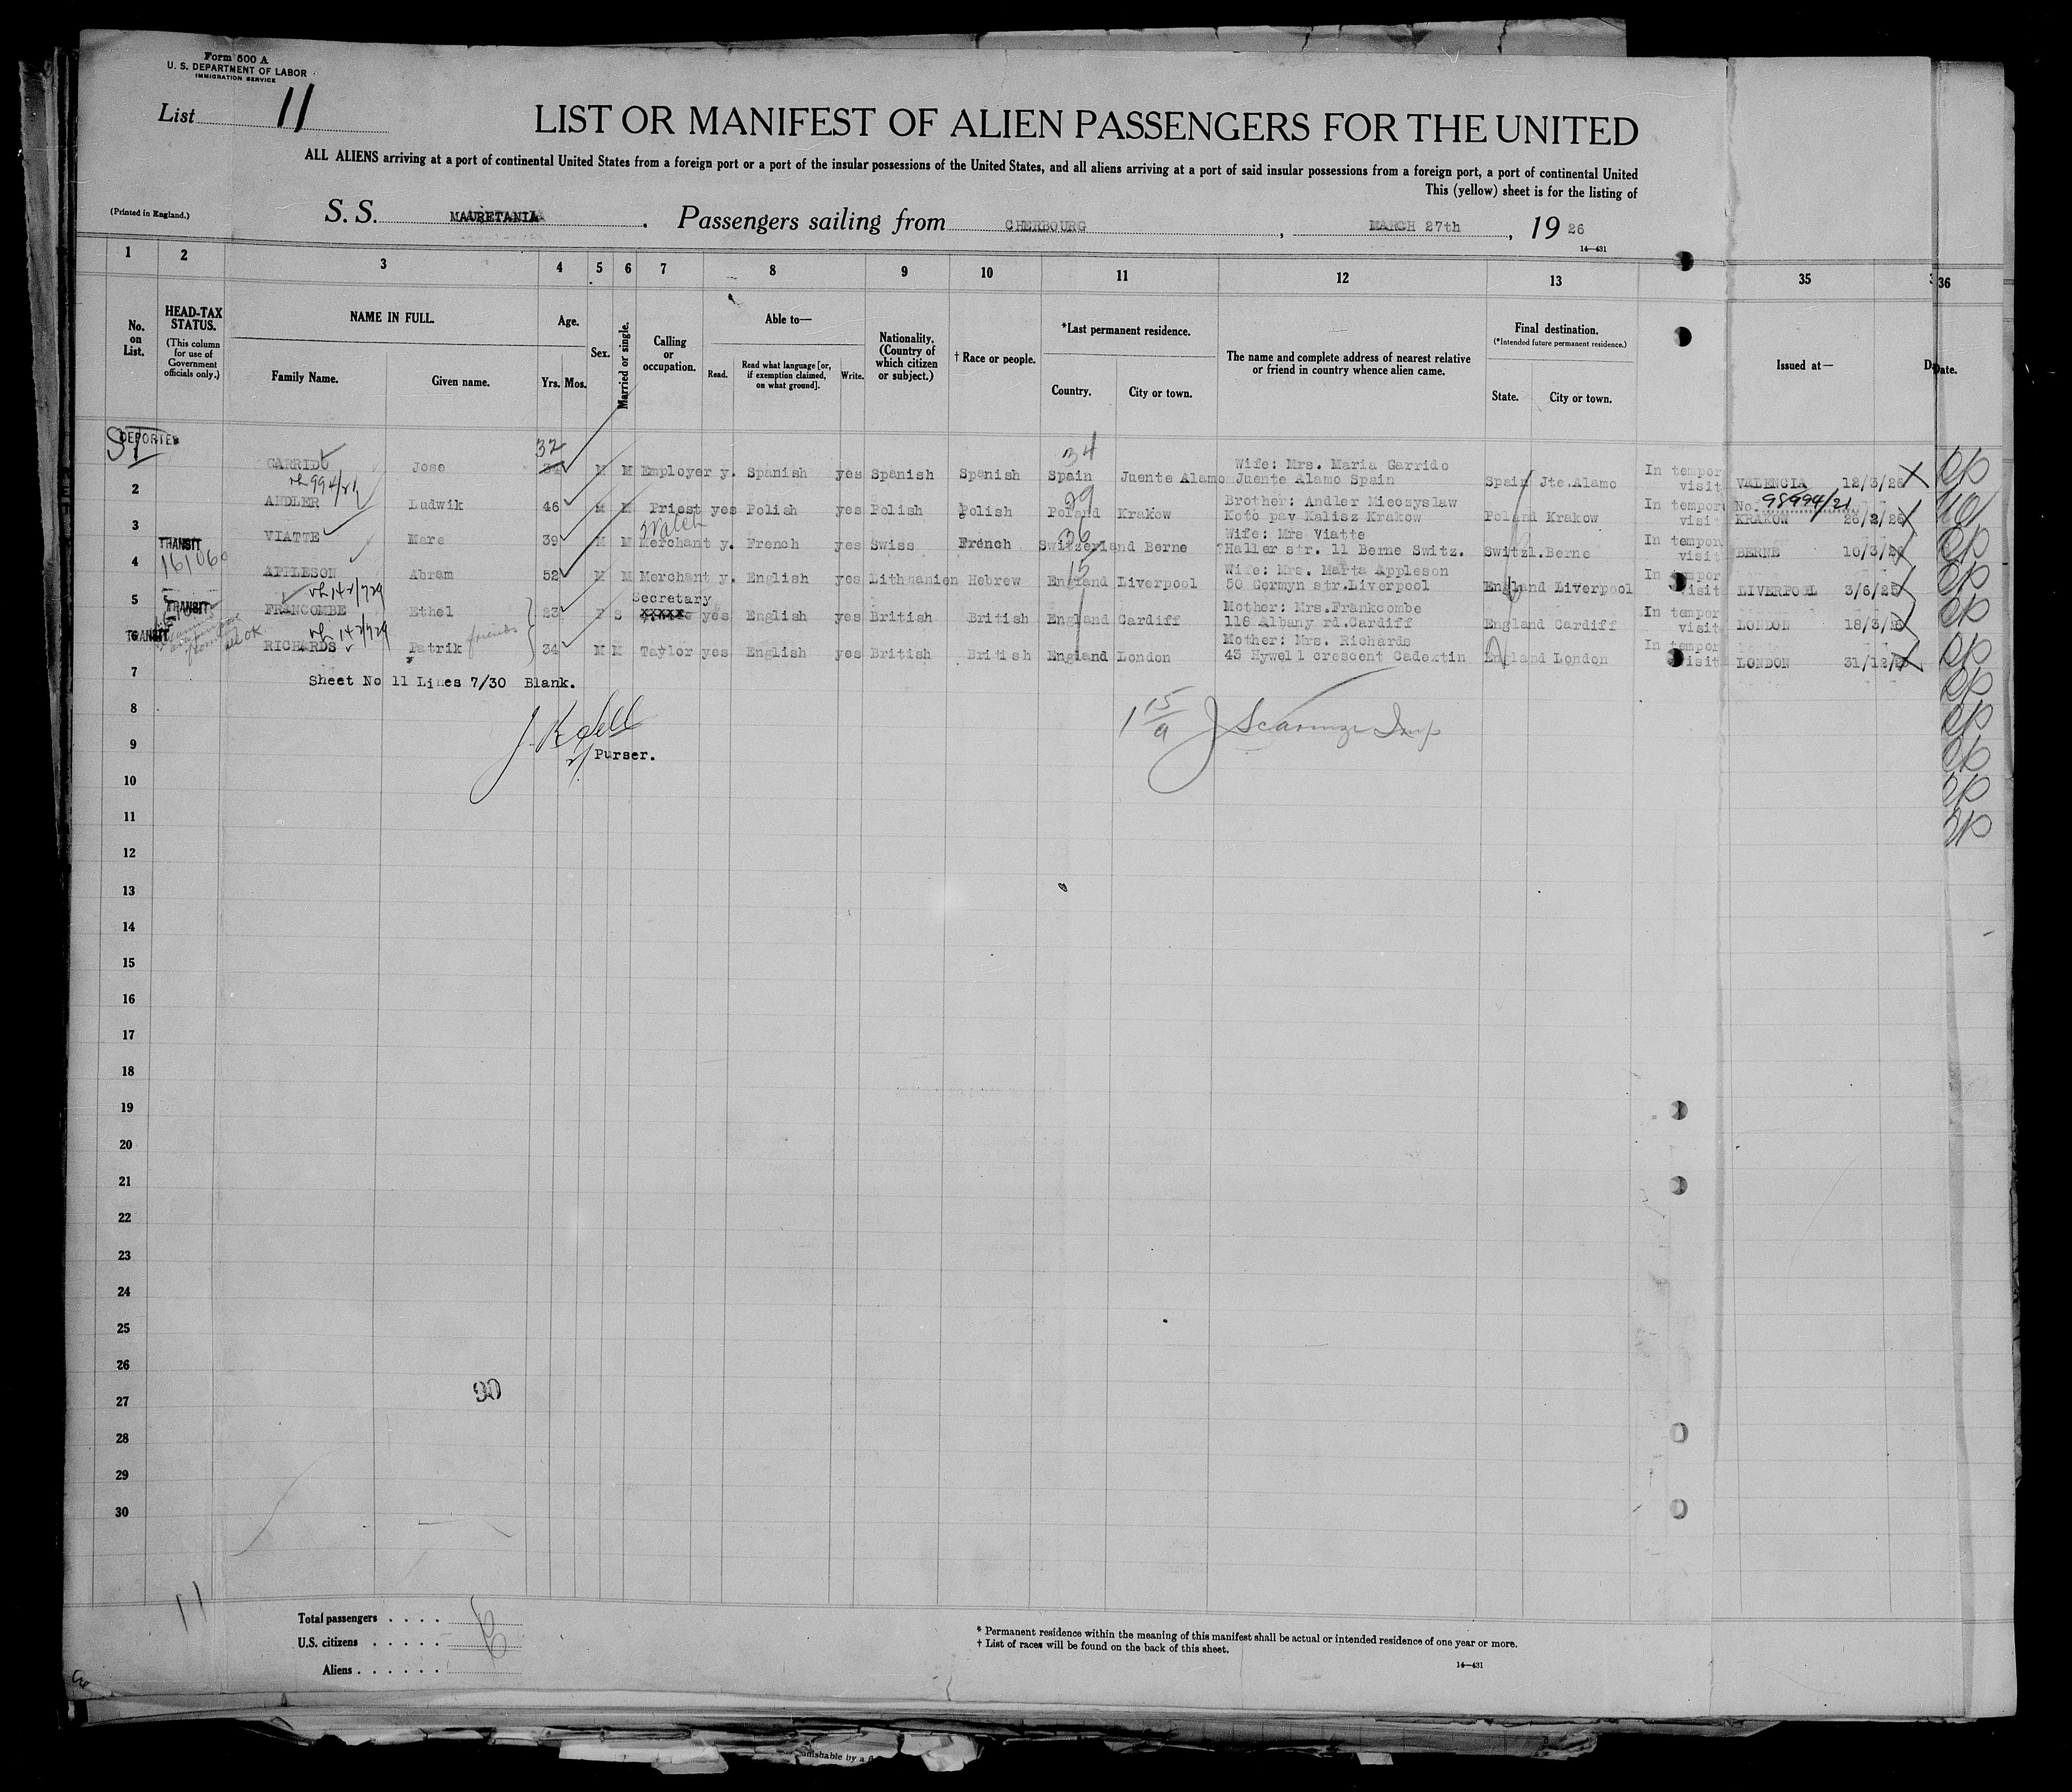 Form 500 A
U. S. DEPARTMENT OF LABOR
IMMIGRATION SERVICE
List 11
LIST OR MANIFEST OF ALIEN PASSENGERS FOR THE UNITED
ALL ALIENS arriving at a port of continental United States from a foreign port or a port of the insular possessions of the United States, and all aliens arriving at a port of said insular possessions from a foreign port, a port of continental United
This (yellow) sheet is for the listing of
(Printed in England.)
S. S. MAURETANIA. Passengers sailing from CHERBOURG, MARCH 27th, 1926
14—431
1 2 3 4 5 6 7 8 9 10 11 12 13 35 36
No. on List.
HEAD-TAX STATUS.
(This column for use of Government officials only.)
NAME IN FULL.
Family Name. Given name.
Age.
Yrs. Mos.
Sex.
Married or single.
Calling or occupation.
Able to—
Read. Read what language [or, if exemption claimed, on what ground]. Write.
Nationality. (Country of which citizen or subject.)
† Race or people.
*Last permanent residence.
Country. City or town.
The name and complete address of nearest relative or friend in country whence alien came.
Final destination.
(*Intended future permanent residence.)
State. City or town.
Issued at—
Date.
DEPORTED
SI
32 34
GARRIDO Jose 34 M M Employer y. Spanish yes Spanish Spanish Spain Juente Alamo Wife: Mrs. Maria Garrido
Juente Alamo Spain Spain Jte.Alamo In tempor visit VALENCIA 12/3/26
2 ANDLER Ludwik 46 M M Priest yes Polish yes Polish Polish Poland Krakow Brother: Andler Mieczyslaw
Koto pav Kalisz Krakow Poland Krakow In tempor visit No. 98994/21 KRAKOW 26/2/26
3 VIATTE Marc 39 M M Merchant y. French yes Swiss French Switzerland Berne Wife: Mrs Viatte
Haller str. 11 Berne Switz. Switzl.Berne In tempor visit BERNE 10/3/26
TRANSIT
161060
4 APPLESON Abram 52 M M Merchant y. English yes Lithuanien Hebrew England Liverpool Wife: Mrs. Marta Appleson
50 Germyn str.Liverpool England Liverpool In tempor visit LIVERPOOL 3/6/25
TRANSIT
Secretary
5 FRANCOMBE Ethel 23 F S yes English yes British British England Cardiff Mother: Mrs.Frankcombe
118 Albany rd.Cardiff England Cardiff In tempor visit LONDON 18/3/26
TRANSIT
friends
6 RICHARDS Patrik 34 M M Taylor yes English yes British British England London Mother: Mrs. Richards
43 Hywell crescent Cadextin England London In tempor visit LONDON 31/12/25
7 Sheet No 11 Lines 7/30 Blank.
8
9 Purser.
10
11
12
13
14
15
16
17
18
19
20
21
22
23
24
25
26
27
30
28
29
30
11
Total passengers . . . . 6
U.S. citizens . . . . .
Aliens . . . . . .
* Permanent residence within the meaning of this manifest shall be actual or intended residence of one year or more.
† List of races will be found on the back of this sheet.
14—431
unishable by a f